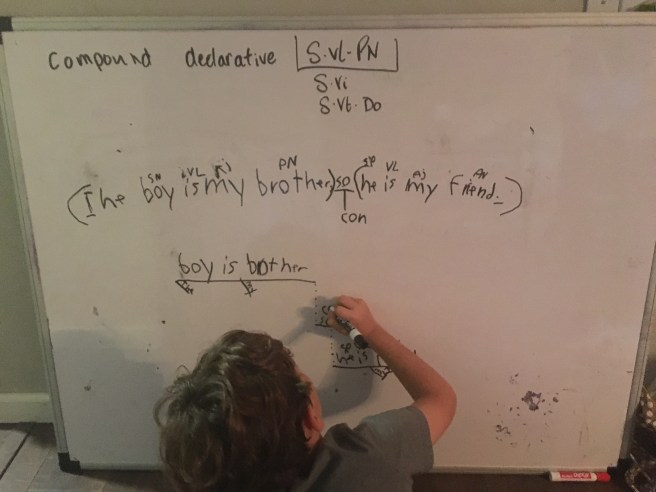 Compound declarative S-VL-PN
S-Vi
S-Vt-Do
SN VL Aj PN SP VL Aj PN
(The boy is my brother) so (he is my friend.)
con
boy is brother
so
SP
he is